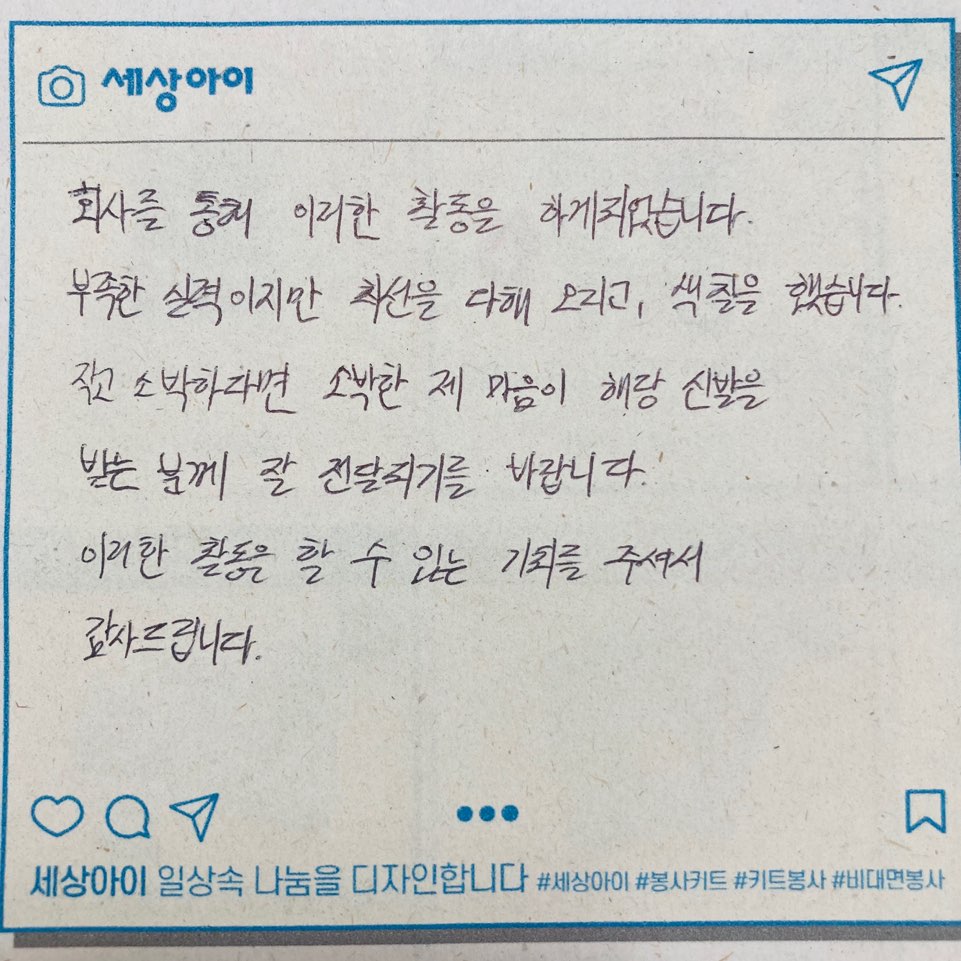 세상아이
회사를 통해 이러한 활동을 하게되었습니다.
부족한 실력이지만 최선을 다해 오리고, 색칠을 했습니다.
작고 소박하다면 소박한 제 마음이 해당 신발을
받는 분께 잘 전달되기를 바랍니다.
이러한 활동을 할 수 있는 기회를 주셔서
감사드립니다.
세상아이 일상속 나눔을 디자인합니다 #세상아이 #봉사키트 #키트봉사 #비대면봉사